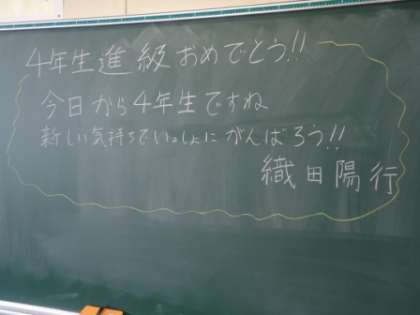 4年生進級おめでとう!!
今日から4年生ですね
新しい気持ちでいっしょにがんばろう!!
織田陽行